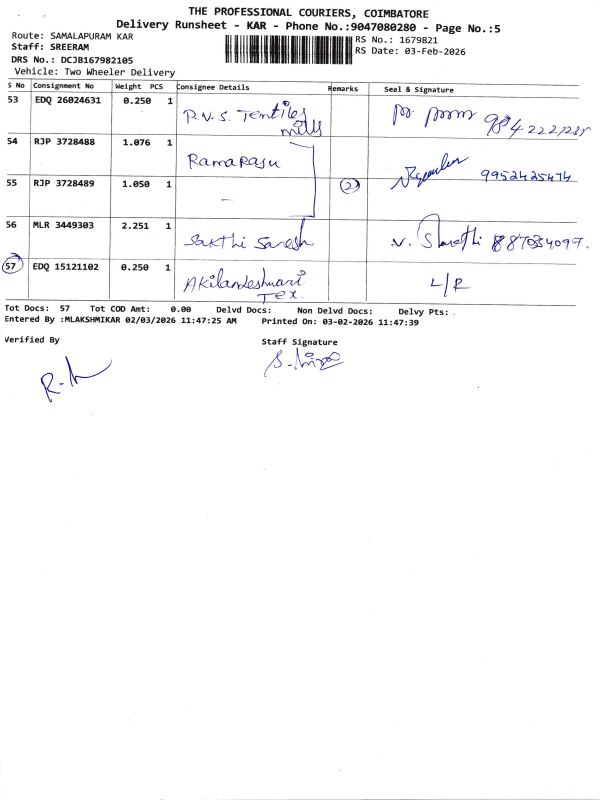 THE PROFESSIONAL COURIERS, COIMBATORE
Delivery Runsheet - KAR - Phone No.:9047080280 - Page No.:5
Route: SAMALAPURAM KAR
RS No.: 1679821
Staff: SREERAM
RS Date: 03-Feb-2026
DRS No.: DCJB167982105
Vehicle: Two Wheeler Delivery
S No Consignment No Weight PCS Consignee Details Remarks Seal & Signature
53 EDQ 26024631 0.250 1 P.V.S. Textiles
mills
54 RJP 3728488 1.076 1 Ramaraju
55 RJP 3728489 1.050 1 - 2 9952425474
56 MLR 3449303 2.251 1 Sakthi Sanesh V.
57 EDQ 15121102 0.250 1 Akilandeshwari L/R
Tex.
Tot Docs: 57 Tot COD Amt: 0.00 Delvd Docs: Non Delvd Docs: Delvy Pts:
Entered By :MLAKSHMIKAR 02/03/2026 11:47:25 AM Printed On: 03-02-2026 11:47:39
Verified By Staff Signature